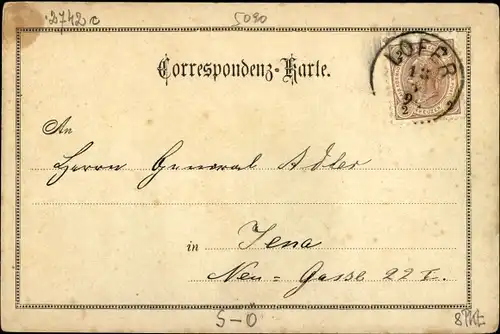 2742c
5090
Correspondenz-Karte.
LOFER
An
Herrn General Adler
in Jena
Neu-Gasse 22 I.
S-Ö